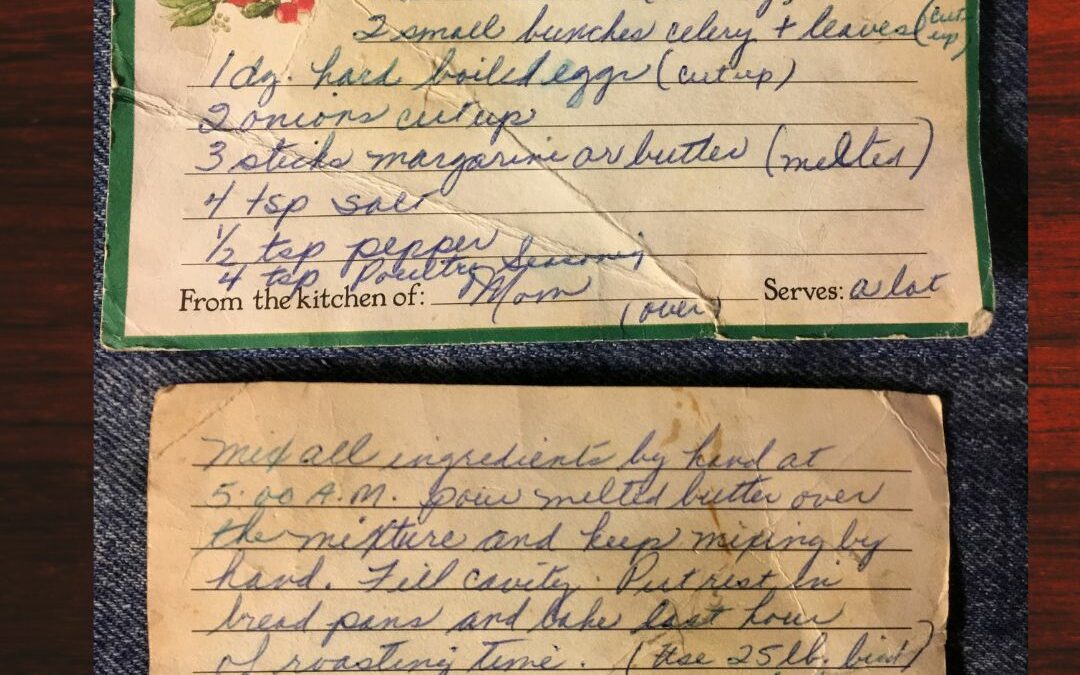 2 small bunches celery + leaves (cut up)
1 dz. hard boiled eggs (cut up)
2 onions cut up
3 sticks margarine or butter (melted)
4 tsp salt
1/2 tsp pepper
4 tsp Poultry Seasoning
From the kitchen of: Mom Serves: a lot
(over)
Mix all ingredients by hand at
5:00 A.M. pour melted butter over
the mixture and keep mixing by
hand. Fill cavity. Put rest in
bread pans and bake last hour
of roasting time. (Use 25 lb. bird)